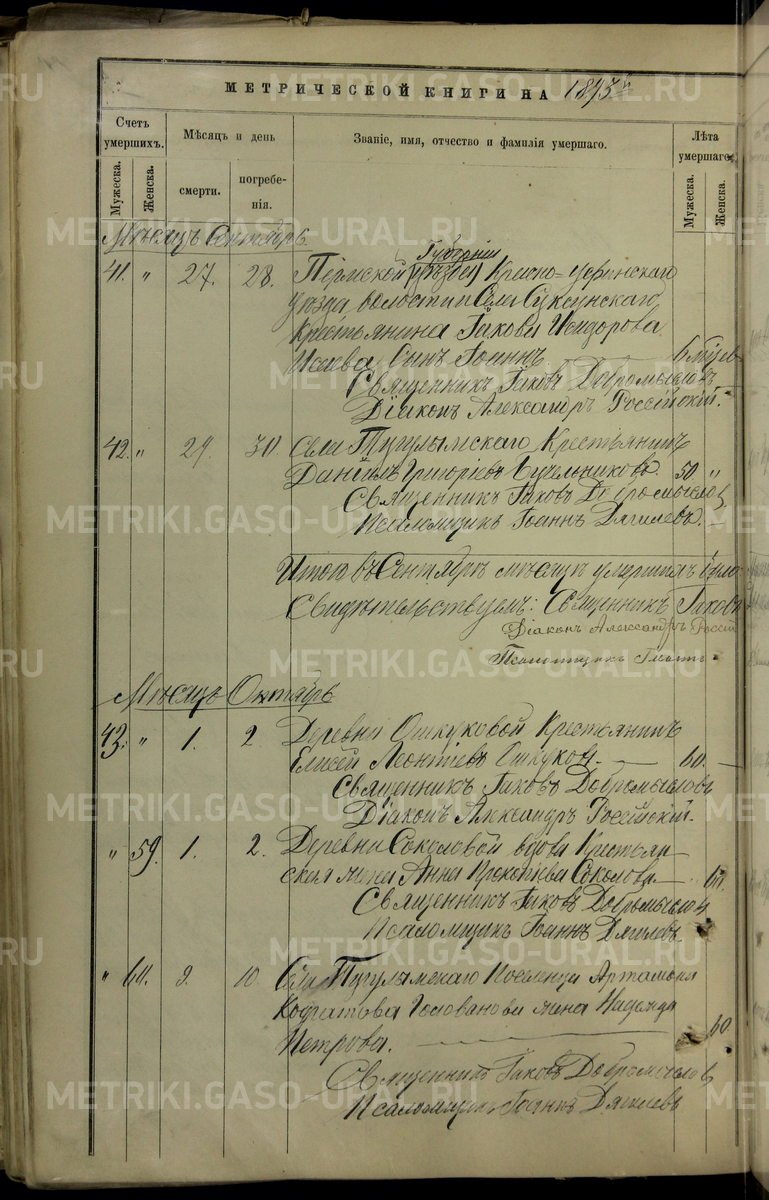 МЕТРИЧЕСКОЙ КНИГИ НА 1893 г.
Счетъ умершихъ.
Мѣсяцъ и день
Званіе, имя, отчество и фамилія умершаго.
Лѣта умершаго
Мужеска.
Женска.
смерти.
погребе-
нія.
Мужеска.
Женска.
Мѣсяцъ Сентябрь
Губерніи
41. " 27. 28. Пермской Красно-Уфимскаго
уѣзда волости и Села Суксунскаго,
Крестьянина Іакова Исидорова
Исаева Сынъ Іоаннъ.
Священникъ Іаковъ Добромысловъ
Діаконъ Александръ Россійскій.
42. " 29. 30. Села Тугулымскаго Крестьянинъ
Даніилъ Григорьевъ 50 "
Священникъ Іаковъ Добромысловъ
Псаломщикъ Іоаннъ Дягилевъ.
Итого въ Сентябрѣ мѣсяцѣ умершихъ было
Свидѣтельствуемъ: Священникъ Іаковъ
Діаконъ Александръ Россій
Псаломщикъ Іоаннъ
Мѣсяцъ Октябрь
43. " 1. 2. Деревни Ошкуковой Крестьянинъ
Елисей Леонтіевъ Ошкуковъ. 60.
Священникъ Іаковъ Добромысловъ
Діаконъ Александръ Россійскій.
" 59. 1. 2. Деревни Соколовой вдова Крестьян
ская жена Анна Прокопіева Соколова 60.
Священникъ Іаковъ Добромысловъ
Псаломщикъ Іоаннъ Дягилевъ.
" 60. 9. 10. Села Тугулымскаго Поселенца Артамона
Кодратова Голованова жена Надежда
Петрова. 60.
Священникъ Іаковъ Добромысловъ
Псаломщикъ Іоаннъ Дягилевъ
METRIKI.GASO-URAL.RU